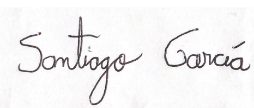 Santiago García